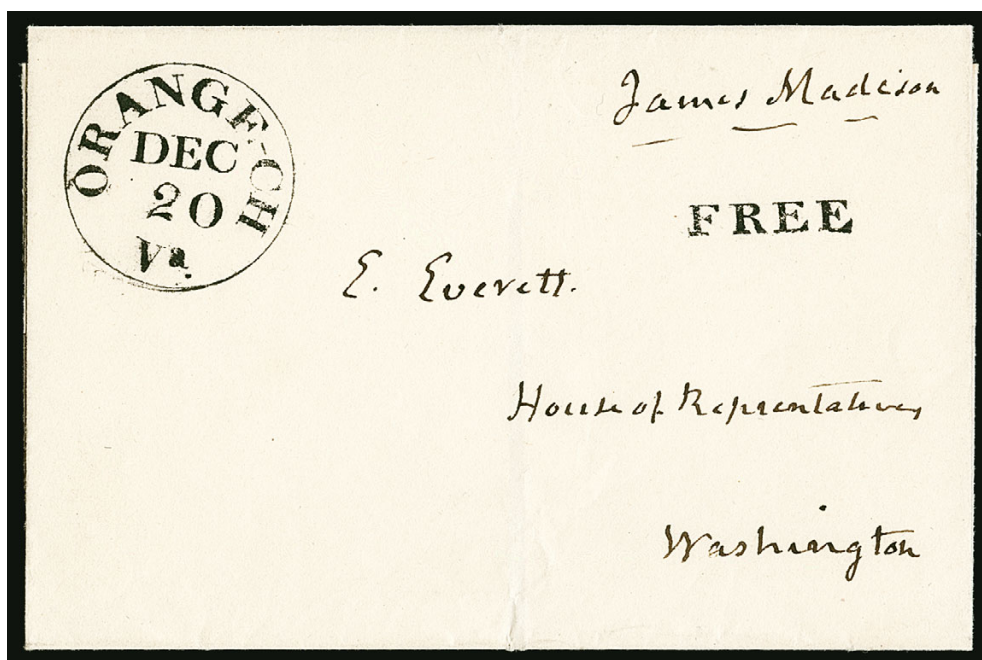 ORANGE-CH
DEC
20
Va.
James Madison
FREE
E. Everett.
House of Representatives
Washington